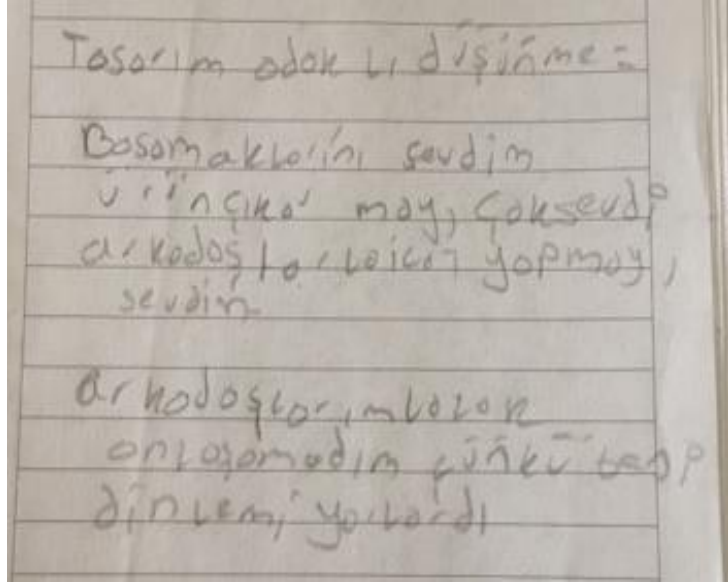 Tasarım odaklı düşünme =
Basamaklarını sevdim
ürün çıkar mayı çok sevdi
arkadaşlarla icat yapmayı
sevdim
arkadaşlarımla
anlaşamadım çünkü beni
dinlemiyorlardı